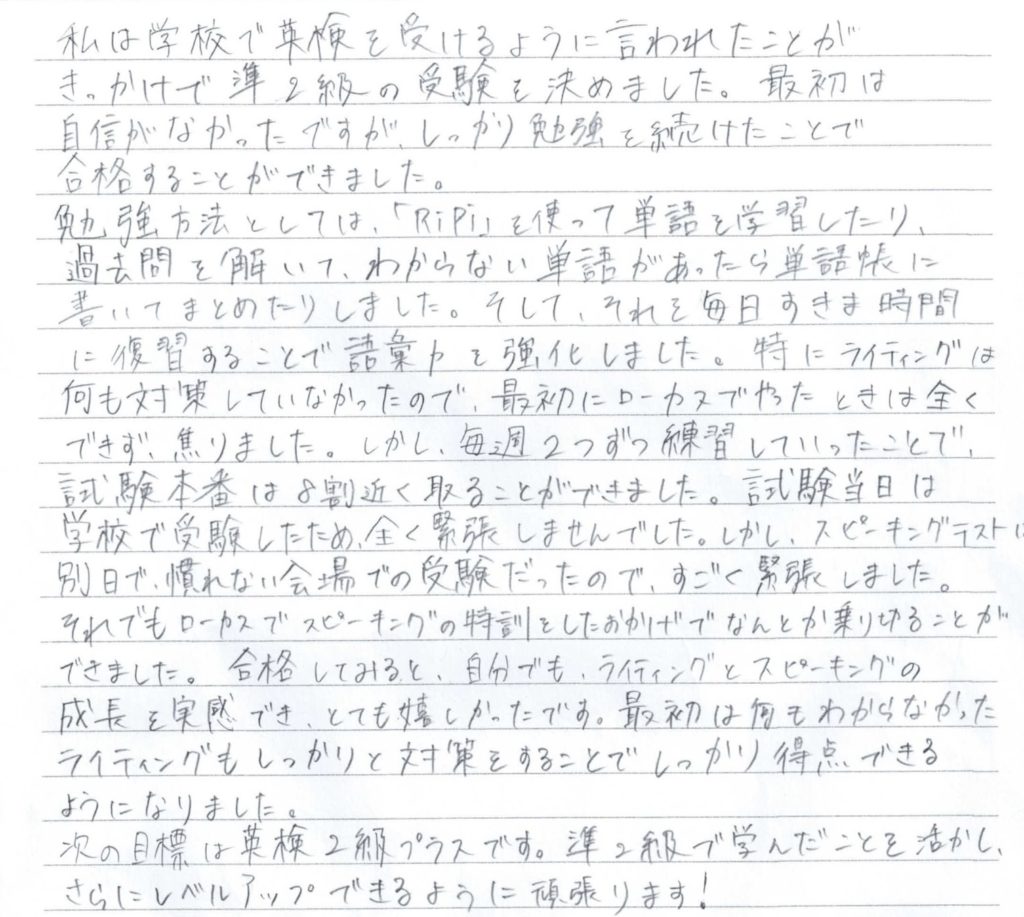 私は学校で英検を受けるように言われたことが
きっかけで準2級の受験を決めました。最初は
自信がなかったですが、しっかり勉強を続けたことで
合格することができました。
勉強方法としては、「RiPi」を使って単語を学習したり、
過去問を解いて、わからない単語があったら単語帳に
書いてまとめたりしました。そして、それを毎日すきま時間
に復習することで語彙力を強化しました。特にライティングは
何も対策していなかったので、最初にローカスでやったときは全く
できず、焦りました。しかし、毎週2つずつ練習していったことで、
試験本番は8割近く取ることができました。試験当日は
学校で受験したため、全く緊張しませんでした。しかし、スピーキングテストは
別日で、慣れない会場での受験だったので、すごく緊張しました。
それでもローカスでスピーキングの特訓をしたおかげでなんとか乗り切ることが
できました。合格してみると、自分でも、ライティングとスピーキングの
成長を実感でき、とても嬉しかったです。最初は何もわからなかった
ライティングもしっかりと対策をすることでしっかり得点できる
ようになりました。
次の目標は英検2級プラスです。準2級で学んだことを活かし、
さらにレベルアップできるように頑張ります!